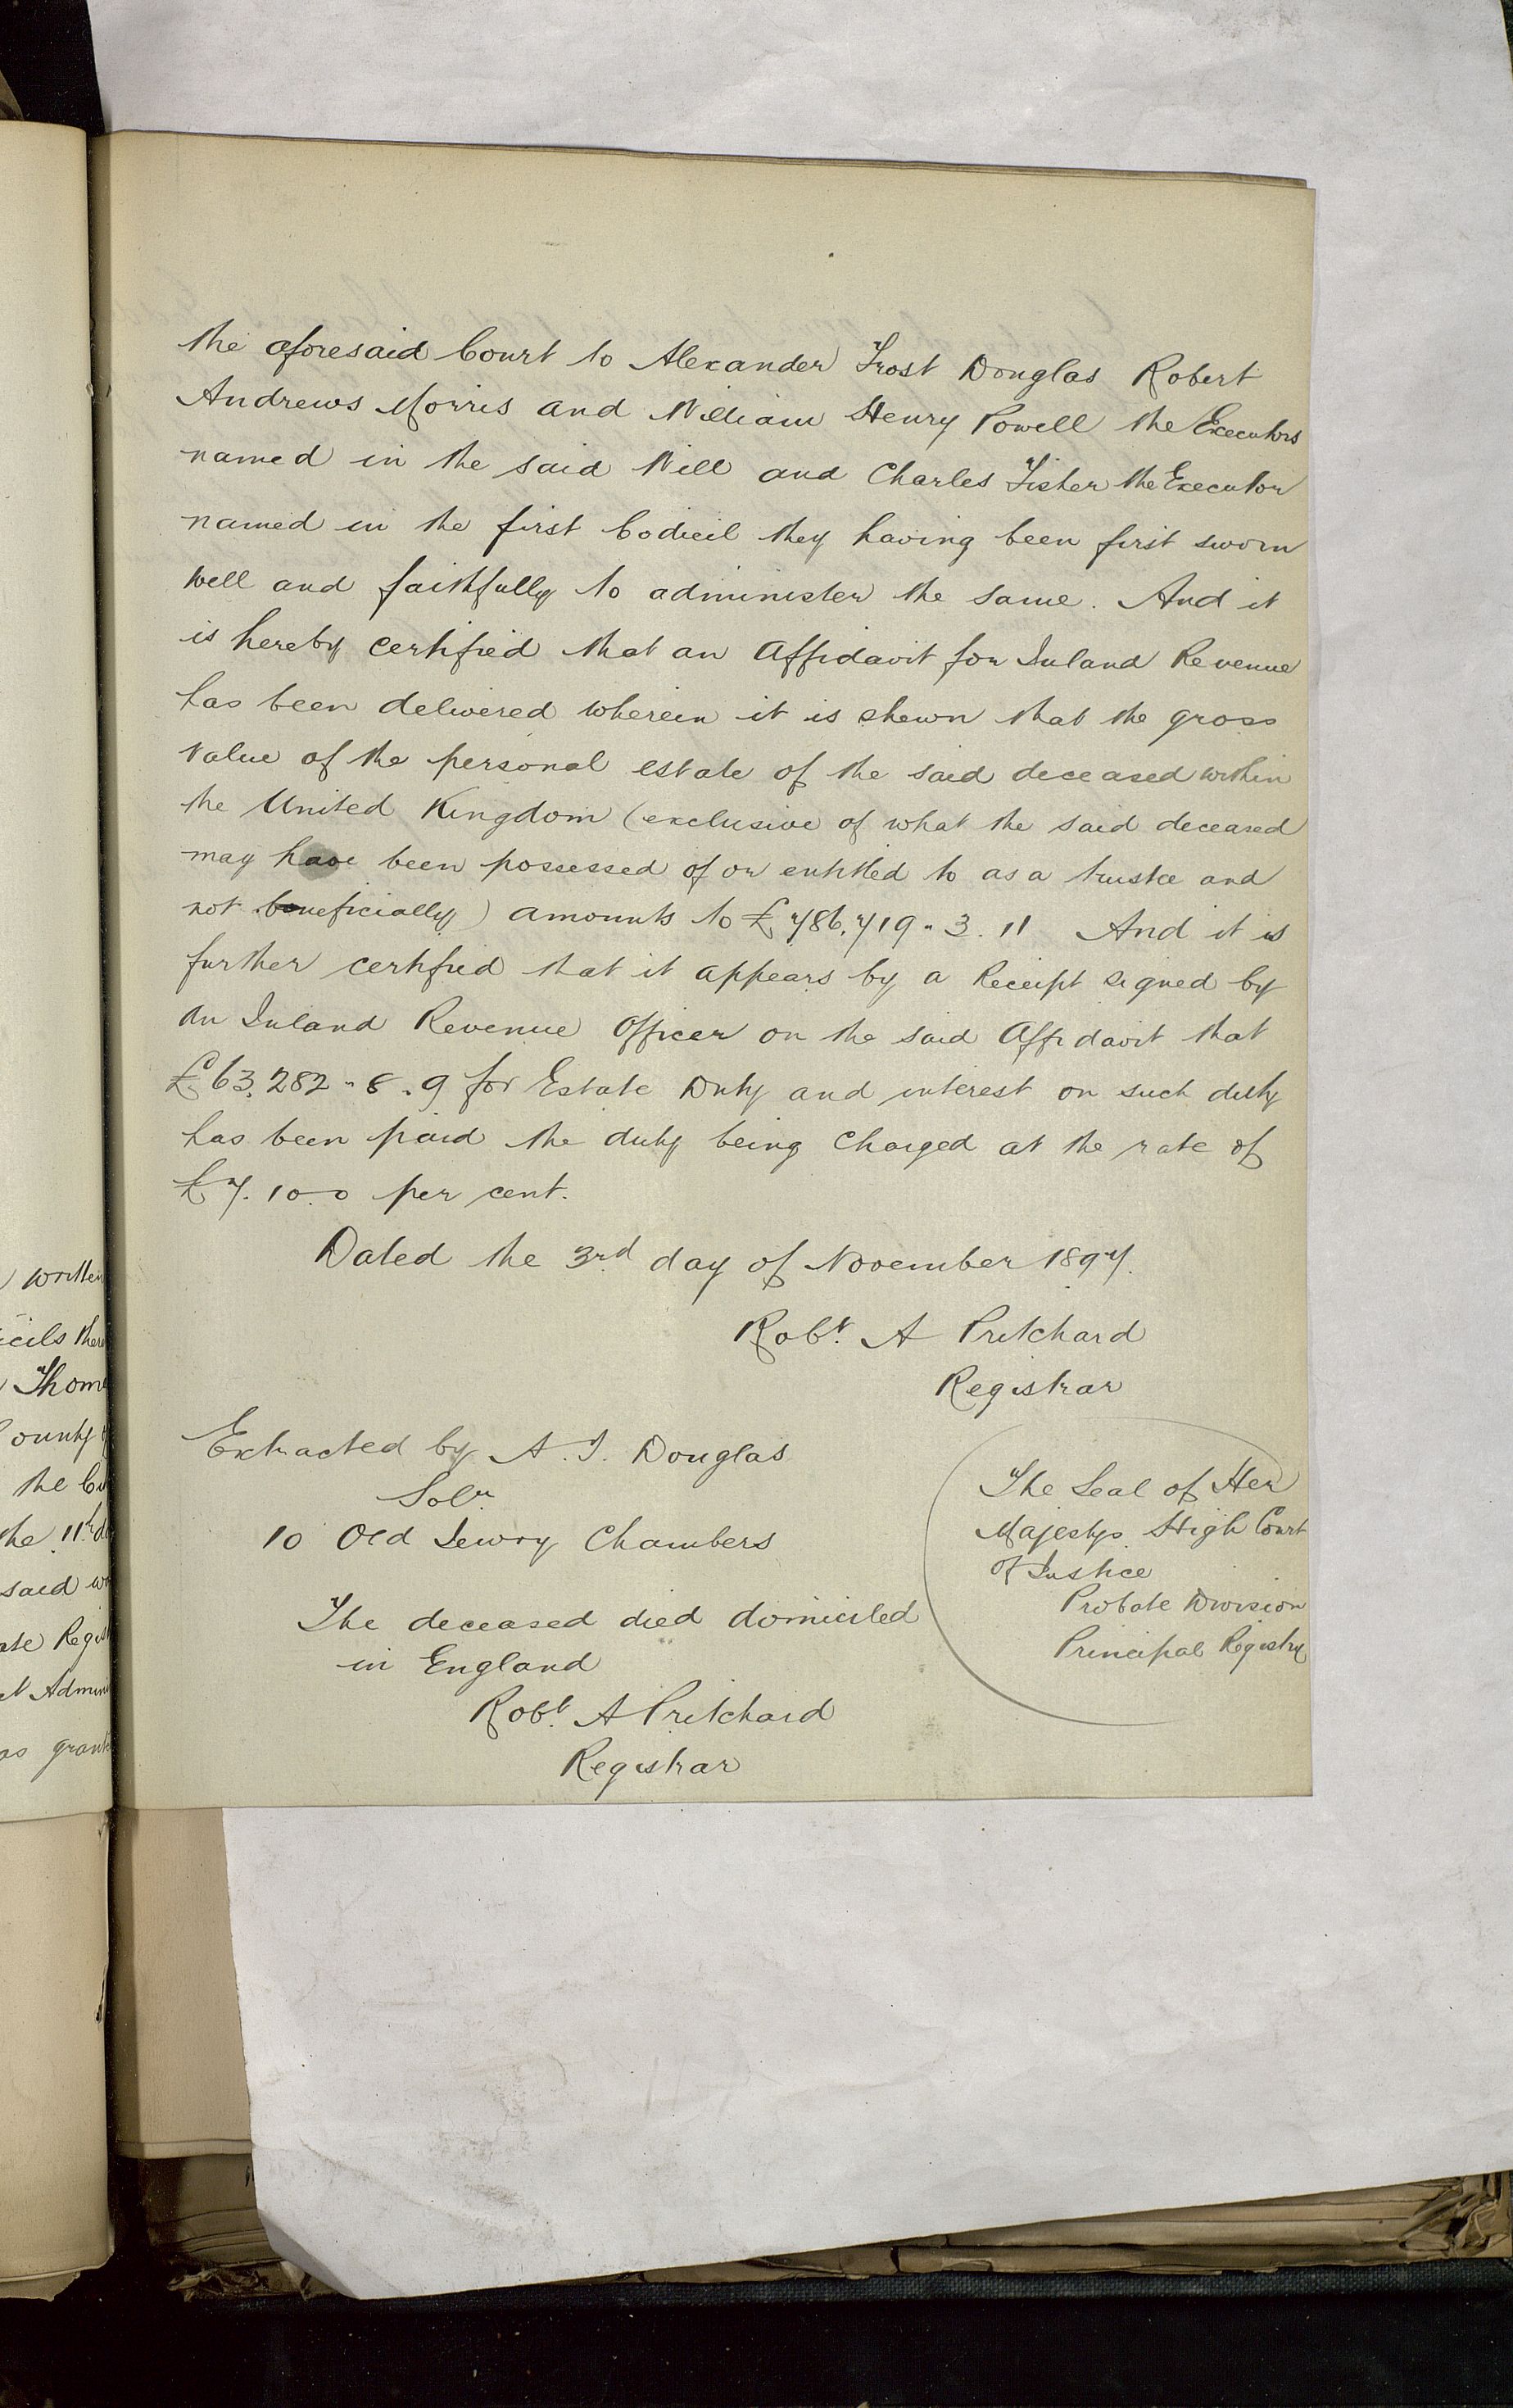 the aforesaid Court to Alexander Frost Douglas Robert
Andrews Morris and William Henry Powell the Executors
named in the said Will and Charles Fisher the Executor
named in the first Codicil they having been first sworn
well and faithfully to administer the same. And it
is hereby certified that an Affidavit for Inland Revenue
has been delivered wherein it is shewn that the gross
value of the personal estate of the said deceased within
the United Kingdom (exclusive of what the said deceased
may have been possessed of or entitled to as a trustee and
not beneficially) amounts to £786,719-3.11 And it is
further certified that it appears by a Receipt signed by
an Inland Revenue Officer on the said Affidavit that
£63,282-8.9 for Estate Duty and interest on such duty
has been paid the duty being charged at the rate of
£7.10.0 per cent.
Dated the 3rd day of November 1897.
Robt. A Pritchard
Registrar
Extracted by A. F. Douglas
Solr.
10 Old Jewry Chambers
The deceased died domiciled
in England
Robt. A Pritchard
Registrar
The Seal of Her
Majestys High Court
of Justice
Probate Division
Principal Registry
written
the
County
the
the 11th
said
as